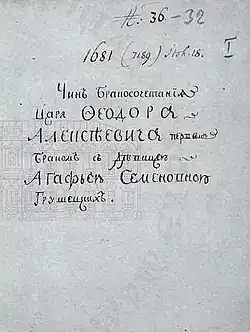 N. 36-32
I
1681 (7189) Iюл. 18.
Чинъ Бракосочетанія
Царя ѲЕОДОРА
АЛЕКСѢЕВИЧА первымъ
бракомъ съ дѣвицею
АГАФЬЕЮ СЕМЕНОВНОЮ
Грушецкихъ.